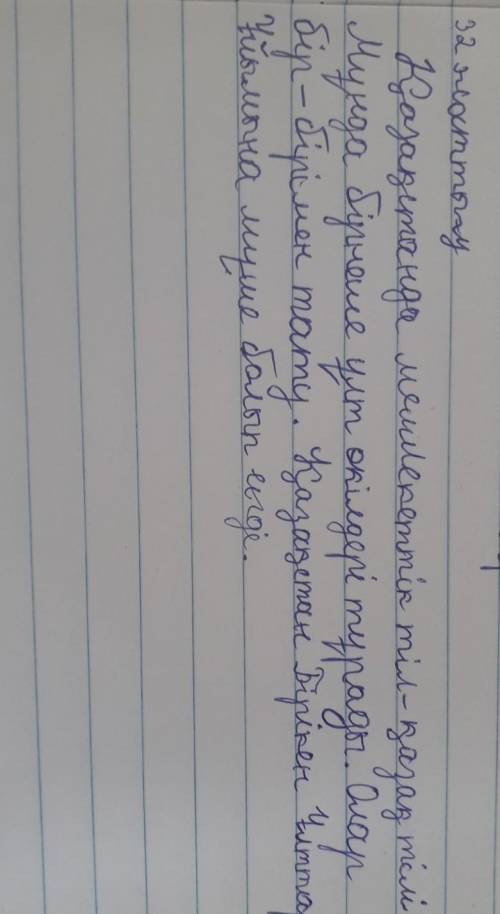 32 жаттығу
Қазақстанда мемлекеттік тіл-қазақ тілі
Мұнда бірнеше ұлт өкілдері тұрады. Олар
бір-бірімен тату. Қазақстан Бірікен Ұлттар
Ұйымына мүше болып енді.